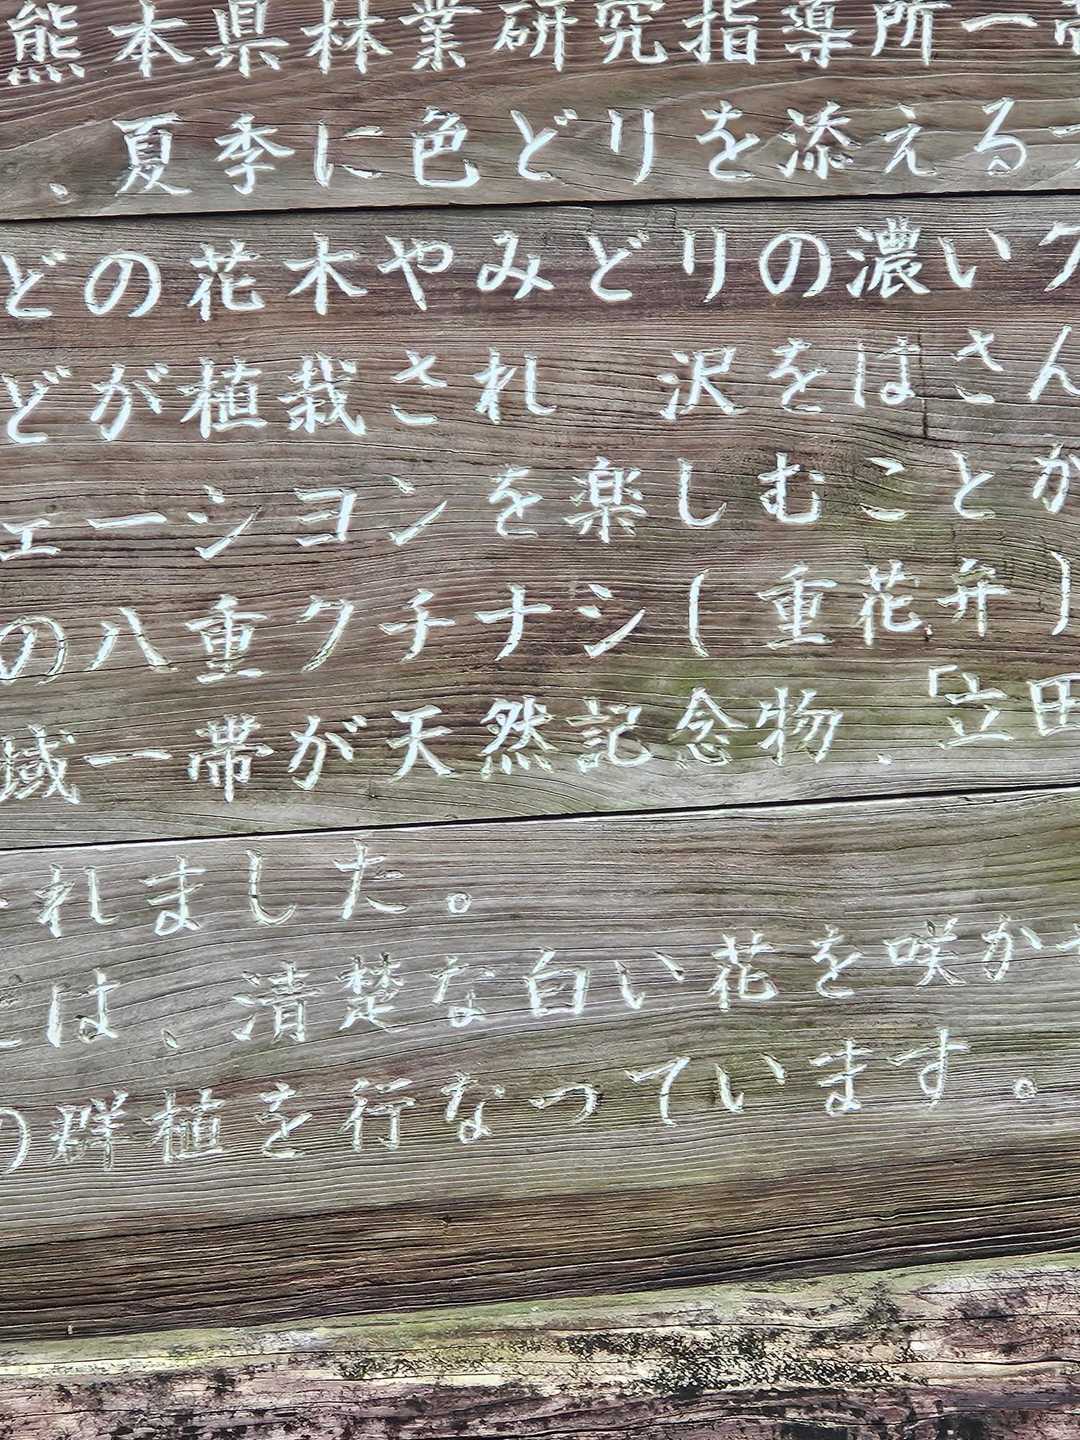 熊本県林業研究指導所一帯
、夏季に色どりを添える
どの花木やみどりの濃いク
どが植栽され 沢をはさん
ェーションを楽しむことが
の八重クチナシ(重花弁)
域一帯が天然記念物、「立田
れました。
は、清楚な白い花を咲か
の群植を行なっています。